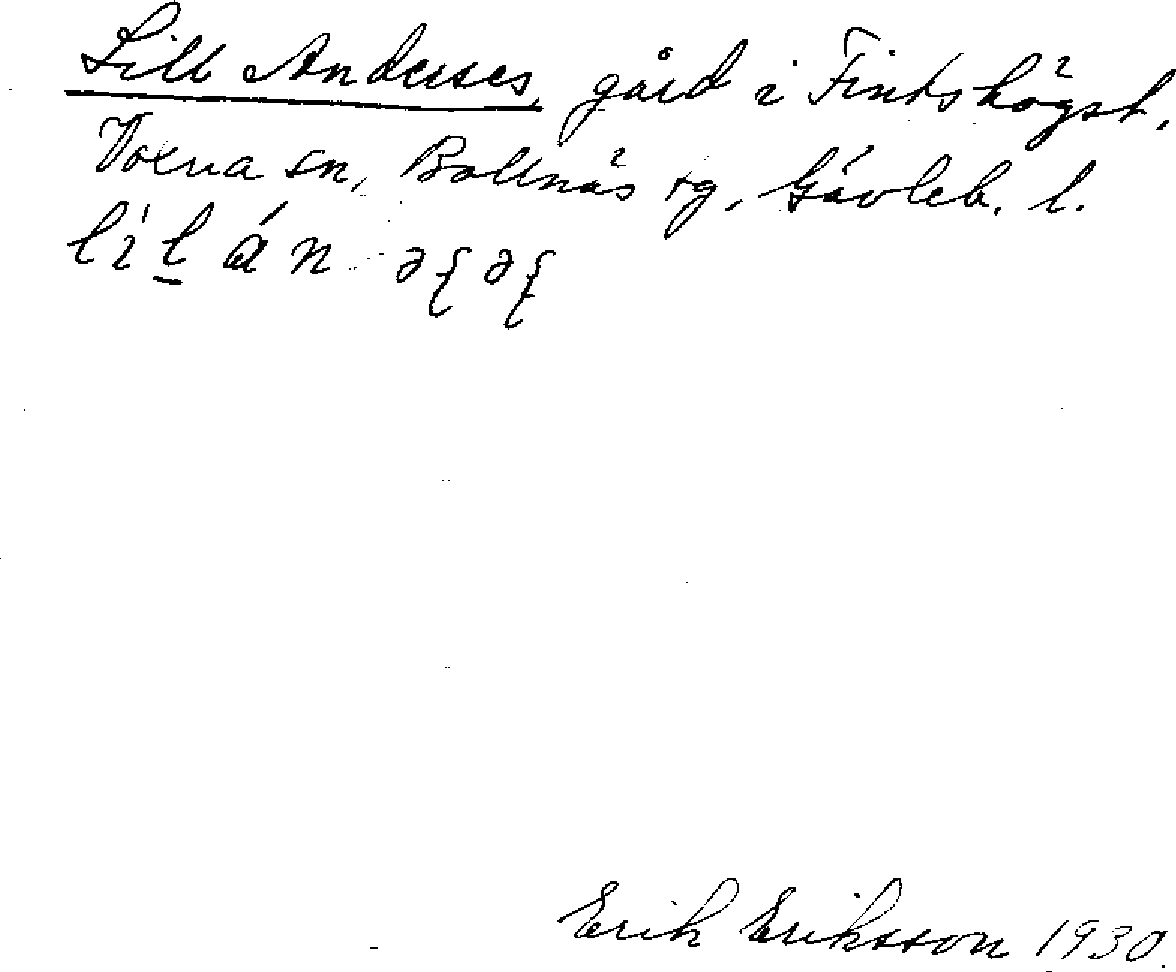 Lill Anderses, gård i Finnshögst,
Voxna sn, Bollnäs tg, Gävleb. l.
lìḻ án əʃəʃ
Erik Eriksson 1930.